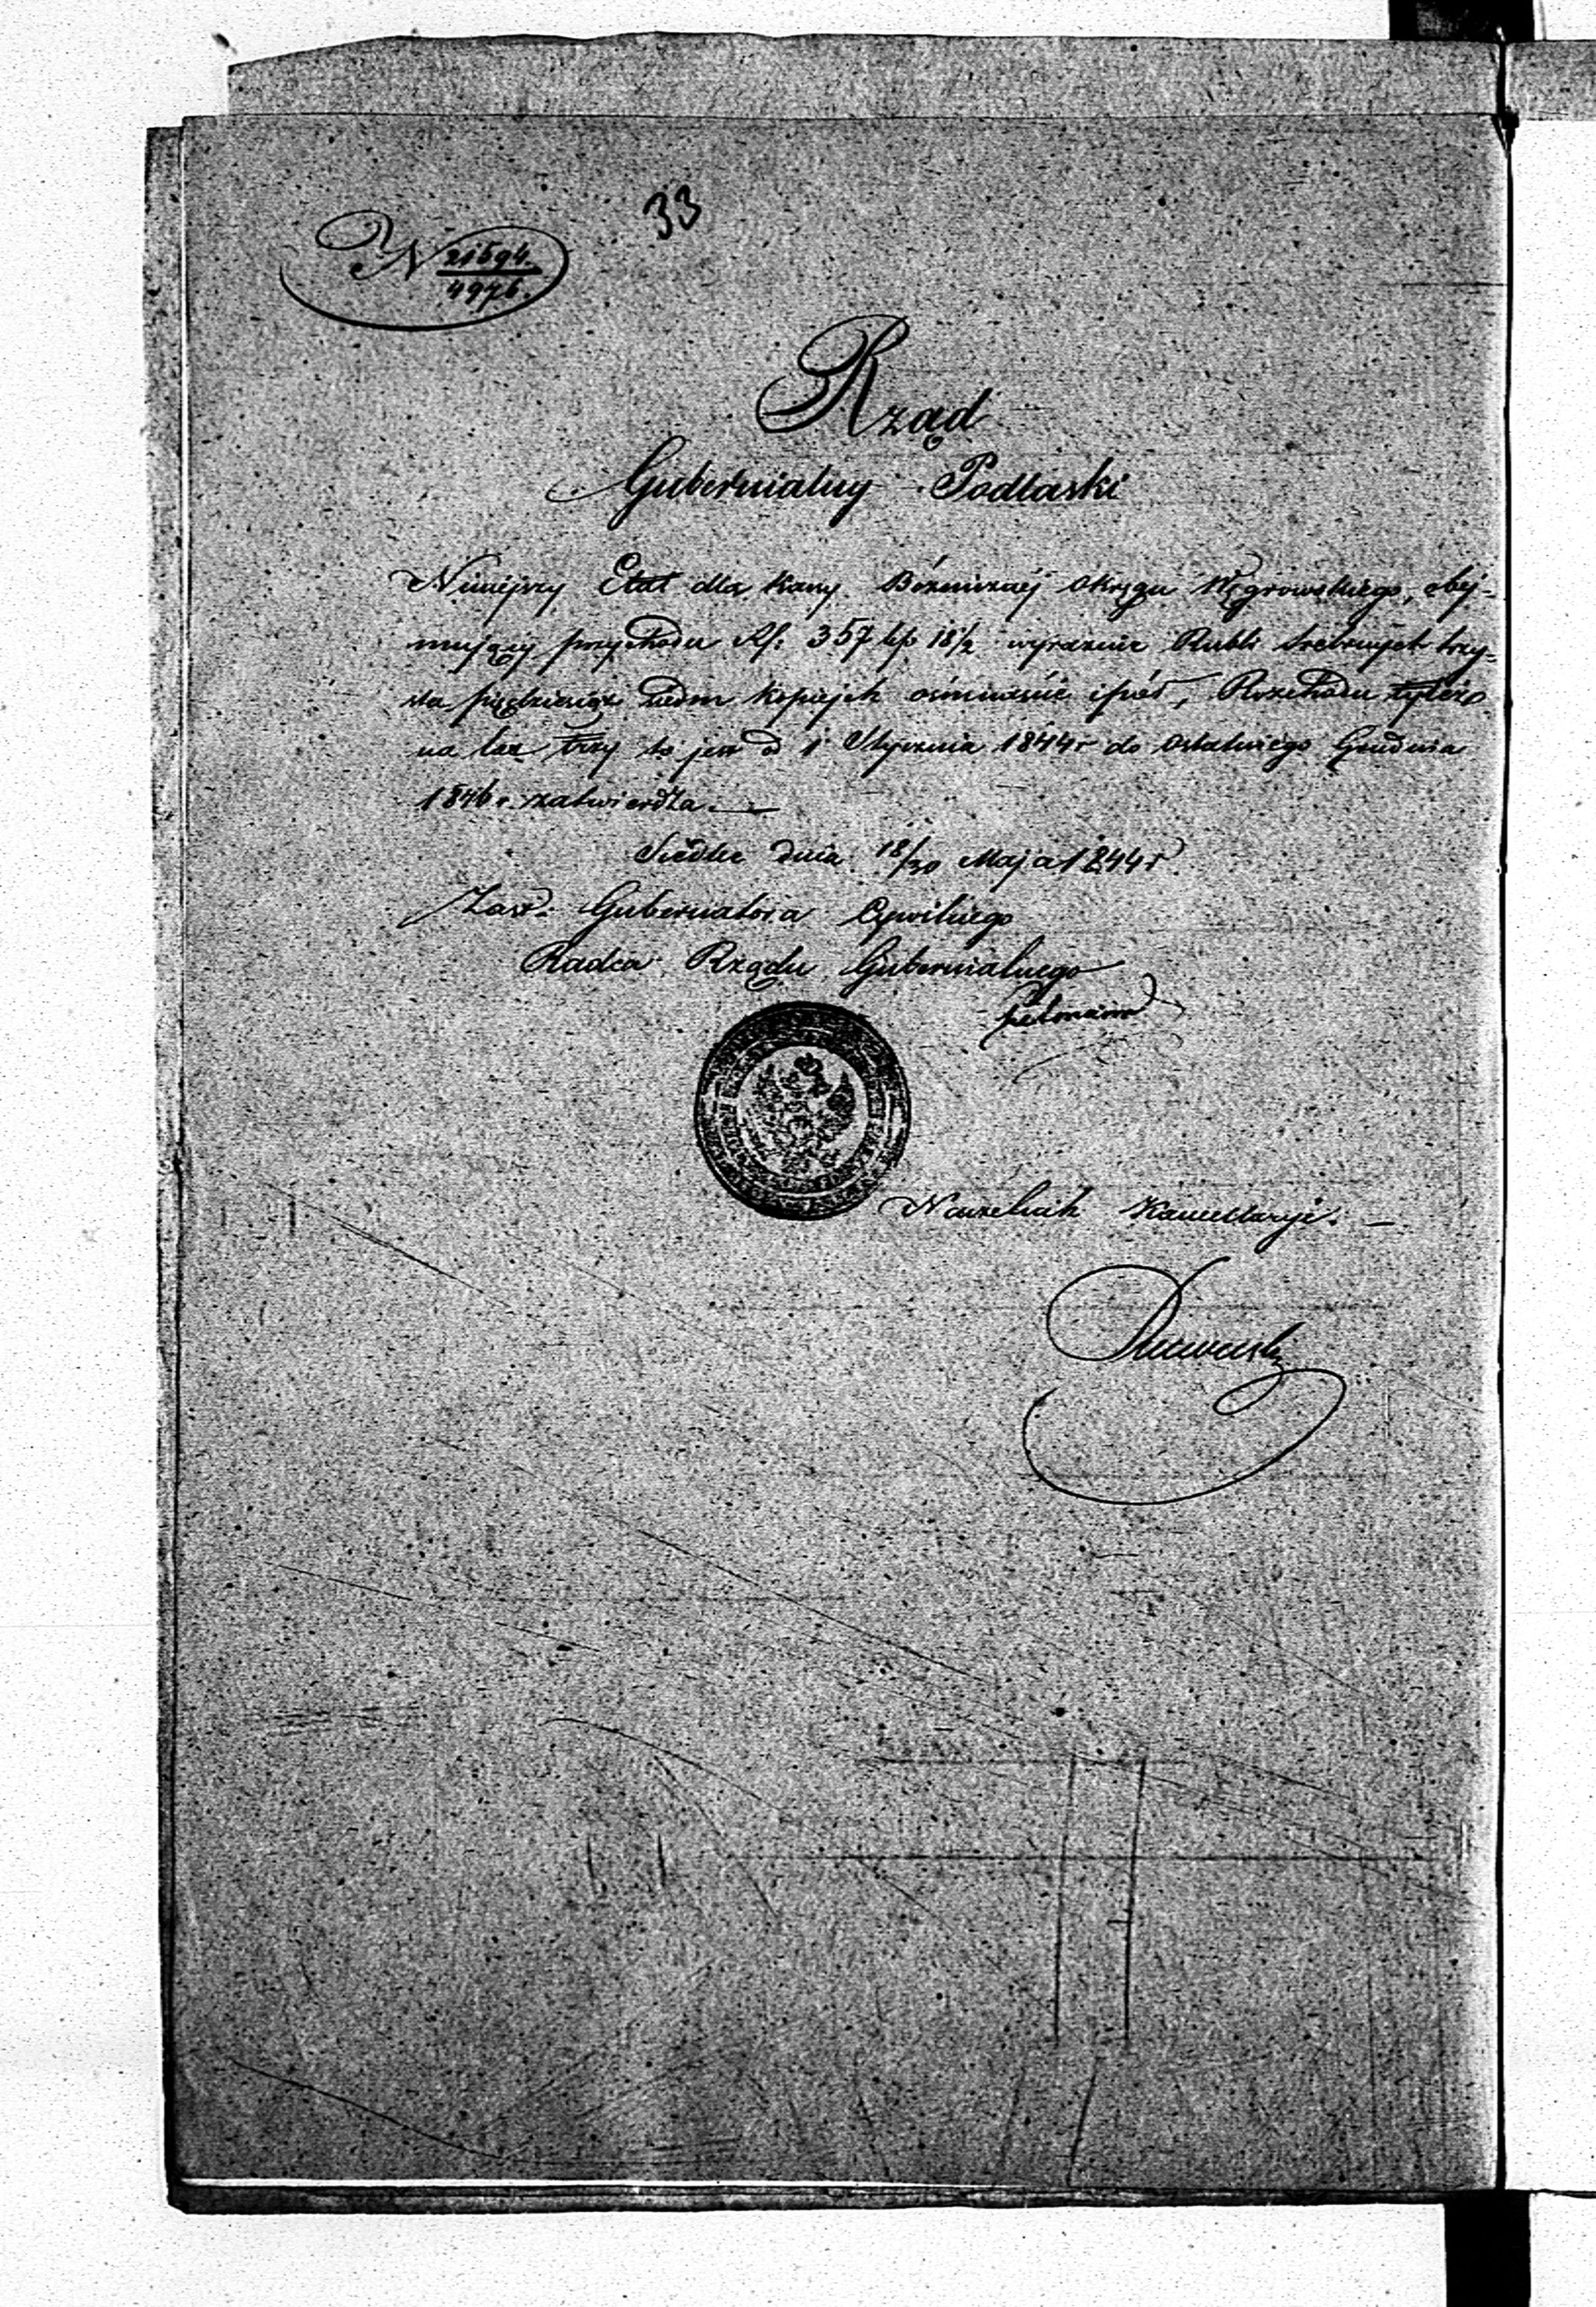 33
N 21594.
4976.
Rząd
Gubernialny Podlaski
Niniejszy Etat dla Kassy Bóżniczéj Okręgu Węgrowskiego, obej-
mujący przychodu Rs: 357 kp 18½ wyraznie Rubli Srebrnych trzy-
sta pięćdziesiąt siedm kopiejek ośmnaście i pół, Rozchodu tyleż
na lat trzy to jest od 1 Stycznia 1844 r do ostatniego Grudnia
1846 r. zatwierdza.
Siedlce dnia 18/30 Maja 1844 r.
Zast: Gubernatora Cywilnego
Radca Rządu Gubernialnego
Naczelnik Kancellaryi.